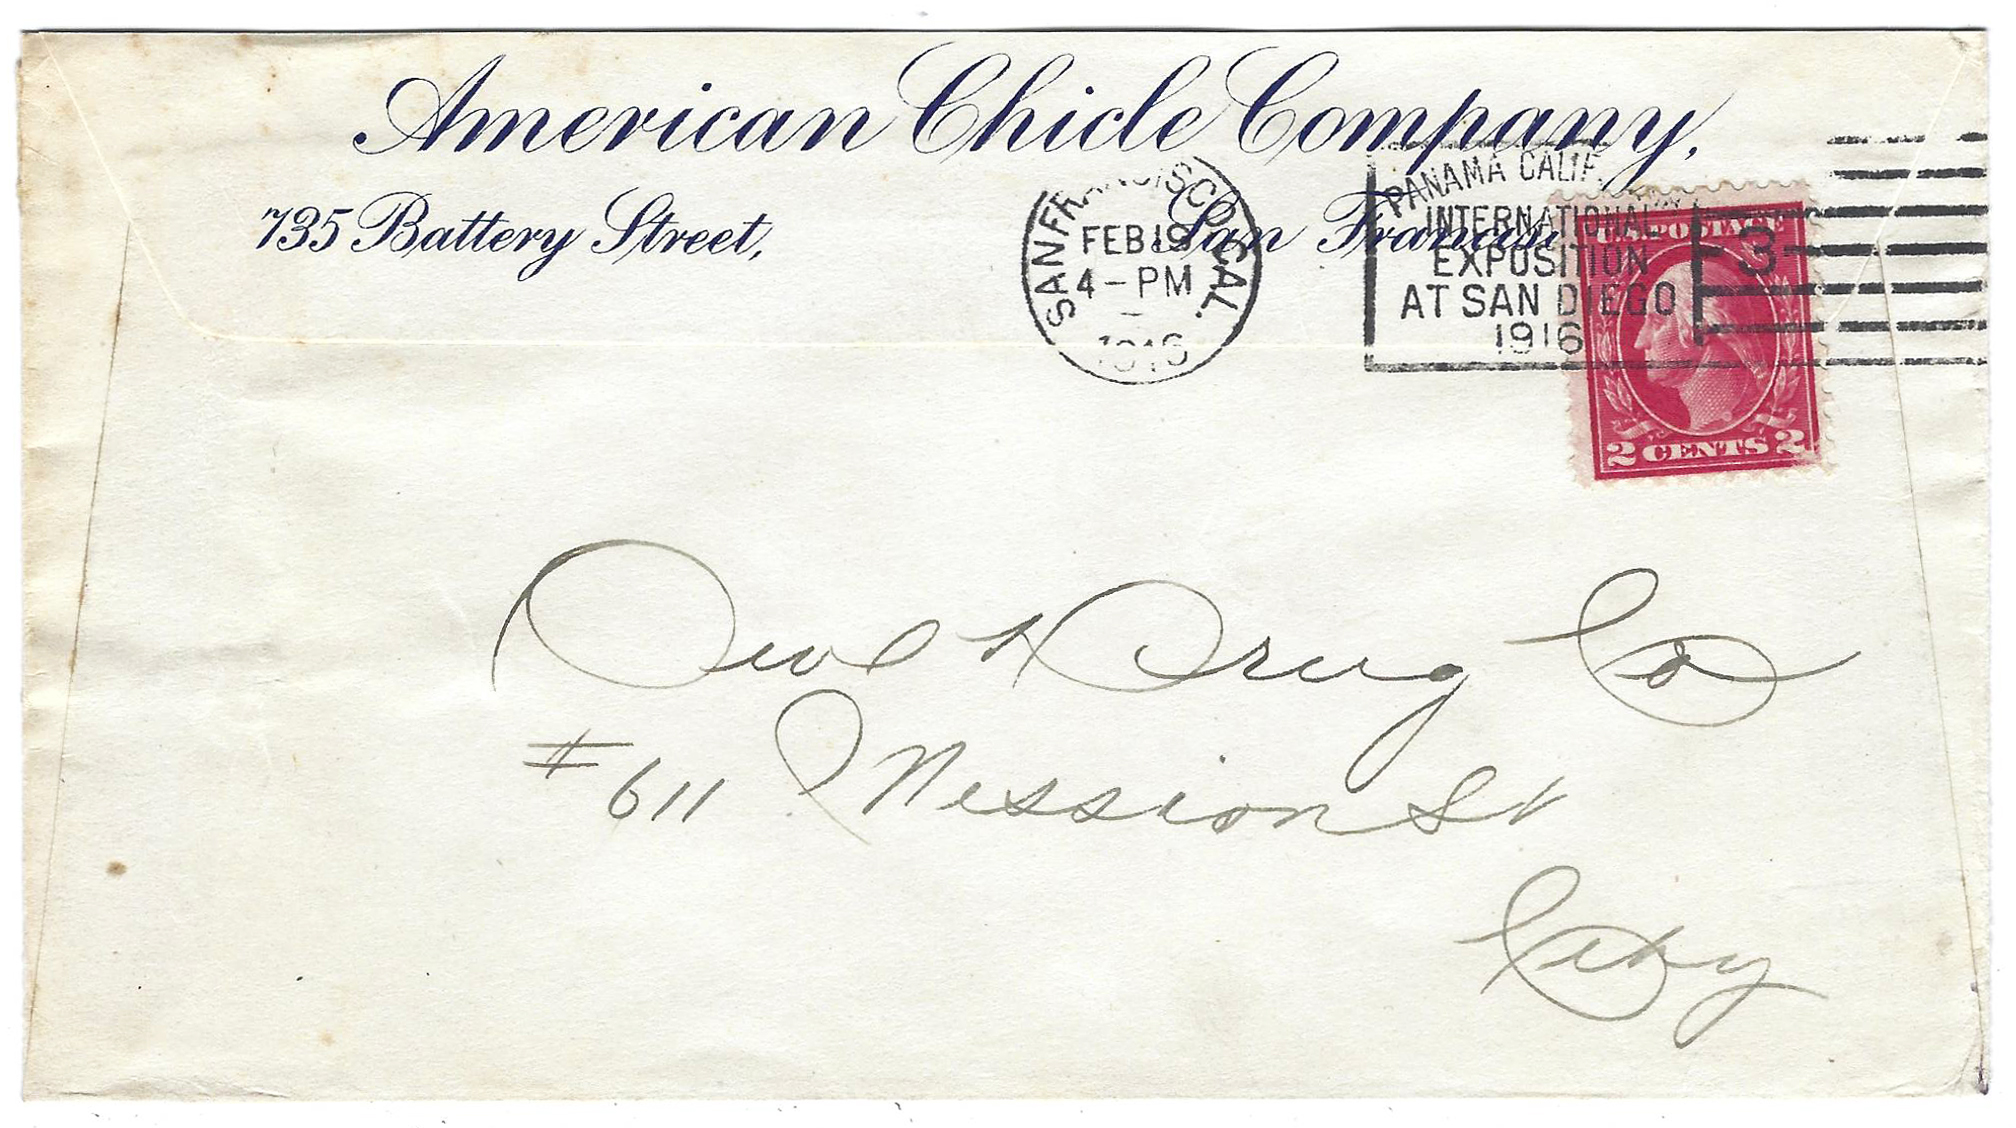 American Chicle Company,
735 Battery Street, San Francisc
SAN FRANCISCO, CAL.
FEB 19
4 - PM
1916
PANAMA CALIF.
INTERNATIONAL
EXPOSITION
AT SAN DIEGO
1916
3
U.S. POSTAGE
2 CENTS 2
Drug Co
# 611 Mession St
City